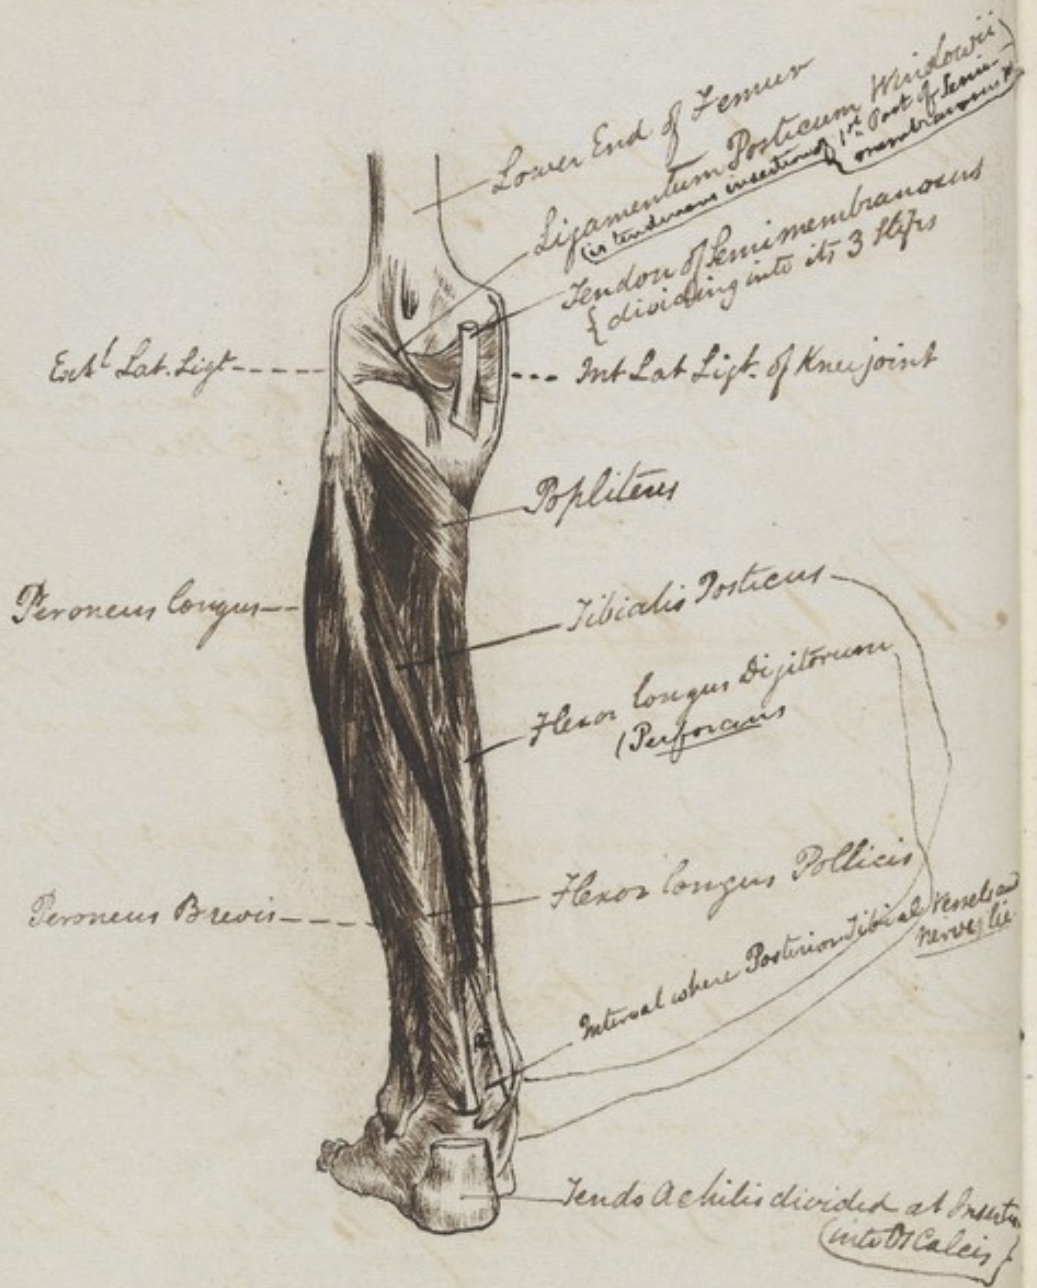 Lower End of Femur
Ligamentum Posticum Windowii
(is tendinous insertion of 1st Part of Semi-
membranosus
Tendon of Semimembranosus
{dividing into its 3 slips
Extl Lat. Ligt
Int Lat Ligt. of Knee joint
Popliteus
Tibialis Posticus
Peroneus longus
Flexor longus Digitorum
(Perforans
Flexor longus Pollicis
Peroneus Brevis
Interval where Posterior Tibial Vessels and
Nerves lie
Tendo Achilis divided at Insertn
(into Os Calcis}